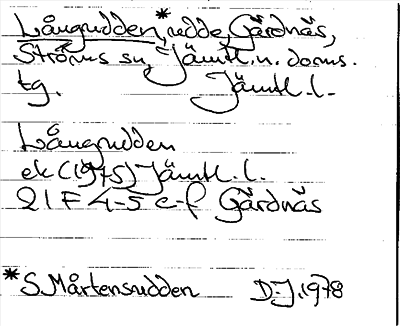 Långrudden,* udde, Gärdnäs,
Ströms sn, Jämtl. n. doms.
tg. Jämtl. l.
Långrudden
ek (1975) Jämtl. l.
21 F 4-5 e-f Gärdnäs
* S Mårtensudden D-J. 1978